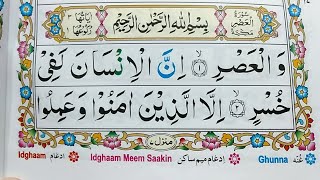 سُوْرَةُ الْعَصْرِ مَكِّيَّةٌ
بِسْمِ اللّٰهِ الرَّحْمٰنِ الرَّحِيْمِ
اٰيَاتُهَا ٣
رُكُوْعُهَا ١
وَالْعَصْرِ ۙ﴿۱﴾ اِنَّ الْاِنْسَانَ لَفِىْ
خُسْرٍ ۙ﴿۲﴾ اِلَّا الَّذِيْنَ اٰمَنُوْا وَعَمِلُوا
منزل ٧
Idghaam ادغام Idghaam Meem Saakin ادغام میم ساکن Ghunna غُنّه